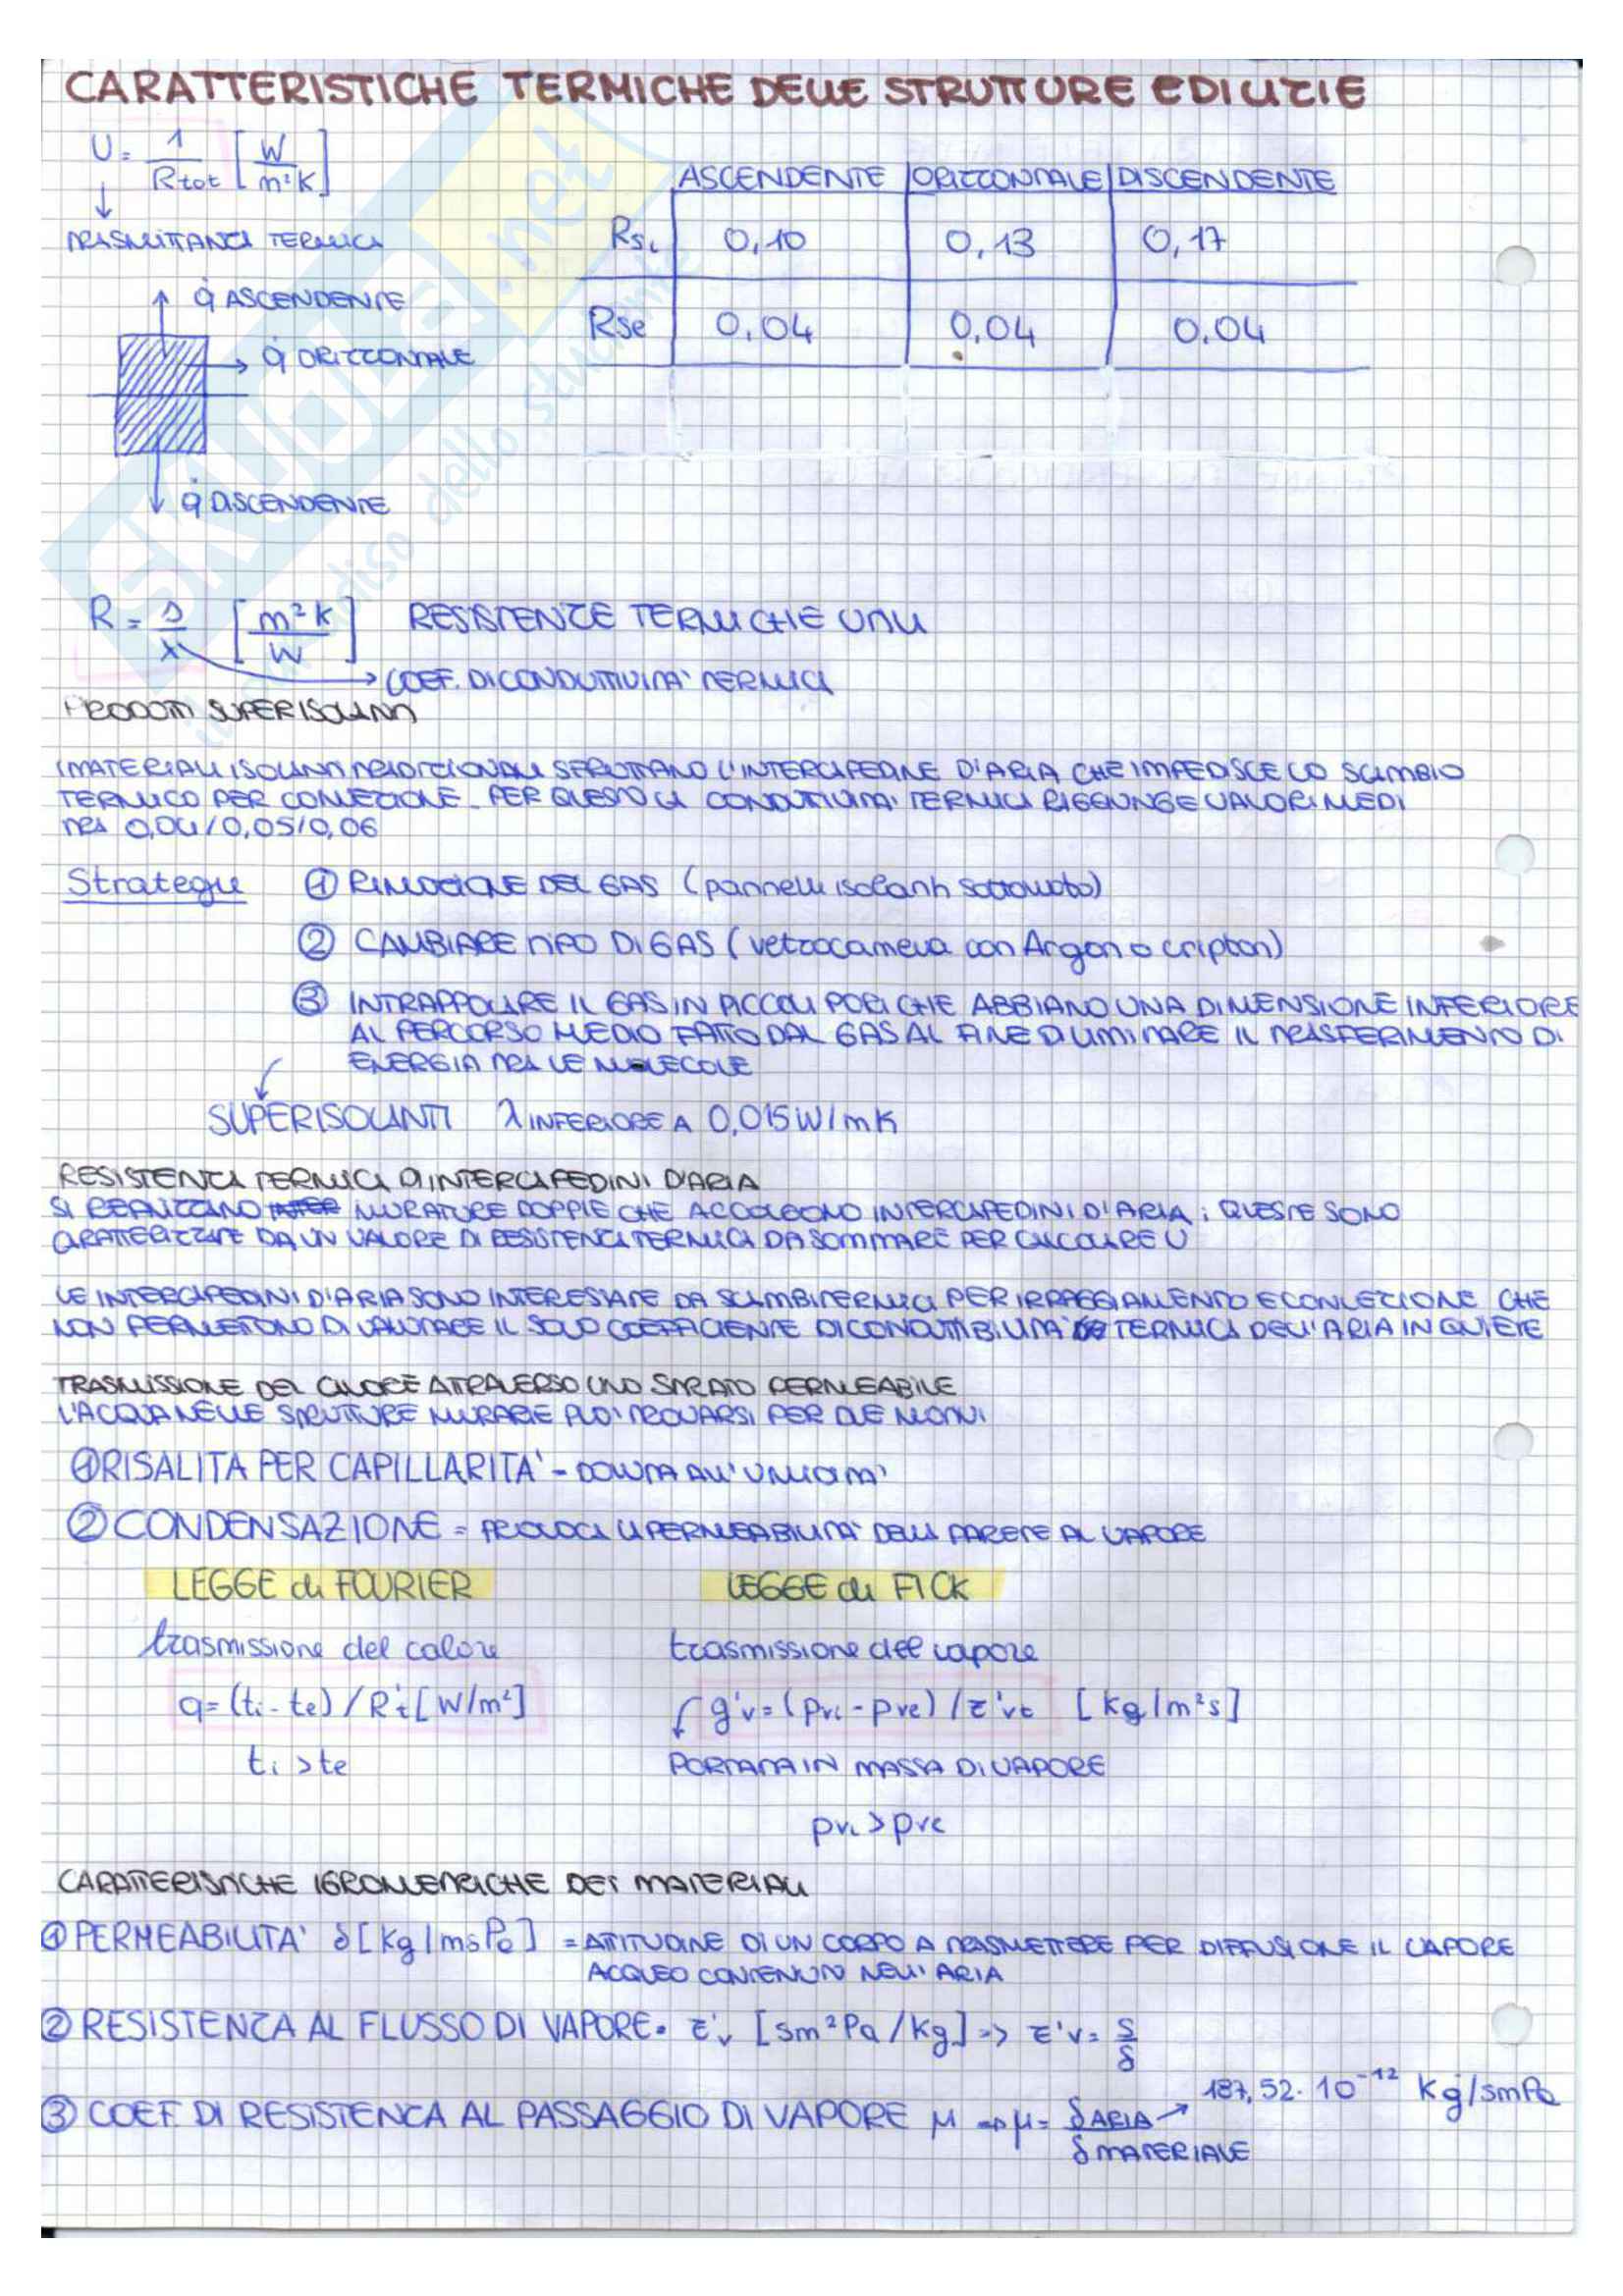 CARATTERISTICHE TERMICHE DELLE STRUTTURE EDILIZIE
U = 1/Rtot [W/m²K]
TRASMITTANZA TERMICA
ASCENDENTE ORIZZONTALE DISCENDENTE
Rsi 0,10 0,13 0,17
Rse 0,04 0,04 0,04
q̇ ASCENDENTE
q̇ ORIZZONTALE
q̇ DISCENDENTE
R = s/λ [m²K/W] RESISTENZE TERMICHE UTILI
COEF. DI CONDUTTIVITA' TERMICA
PRODOTTI SUPERISOLANTI
I MATERIALI ISOLANTI TRADIZIONALI SFRUTTANO L'INTERCAPEDINE D'ARIA CHE IMPEDISCE LO SCAMBIO
TERMICO PER CONVEZIONE. PER QUESTO LA CONDUTTIVITA' TERMICA RAGGIUNGE VALORI MEDI
TRA 0,04/0,05/0,06
Strategie ① RIMOZIONE DEL GAS (pannelli isolanti sottovuoto)
② CAMBIARE TIPO DI GAS (vetrocamera con Argon o cripton)
③ INTRAPPOLARE IL GAS IN PICCOLI PORI CHE ABBIANO UNA DIMENSIONE INFERIORE
AL PERCORSO MEDIO FATTO DAL GAS AL FINE DI LIMITARE IL TRASFERIMENTO DI
ENERGIA TRA LE MOLECOLE
SUPERISOLANTI λ INFERIORE A 0,015 W/mK
RESISTENZA TERMICA DI INTERCAPEDINI D'ARIA
SI REALIZZANO INTER MURATURE DOPPIE CHE ACCOLGONO INTERCAPEDINI D'ARIA; QUESTE SONO
CARATTERIZZATE DA UN VALORE DI RESISTENZA TERMICA DA SOMMARE PER CALCOLARE U
LE INTERCAPEDINI D'ARIA SONO INTERESSATE DA SCAMBI TERMICI PER IRRAGGIAMENTO E CONVEZIONE CHE
NON PERMETTONO DI VALUTARE IL SOLO COEFFICIENTE DI CONDUTTIBILITA' TERMICA DELL'ARIA IN QUIETE
TRASMISSIONE DEL CALORE ATTRAVERSO UNO STRATO PERMEABILE
L'ACQUA NELLE STRUTTURE MURARIE PUO' TROVARSI PER DUE MOTIVI
① RISALITA PER CAPILLARITA' - DOVUTA ALL'UMIDITA'
② CONDENSAZIONE = PROVOCA LA PERMEABILITA' DELLA PARETE AL VAPORE
LEGGE di FOURIER LEGGE di FICK
trasmissione del calore trasmissione del vapore
q = (ti - te) / R't [W/m²] g'v = (pvi - pve) / z'vt [kg/m²s]
ti > te PORTATA IN MASSA DI VAPORE
pvi > pve
CARATTERISTICHE IGROMETRICHE DEI MATERIALI
① PERMEABILITA' δ [Kg/msPa] = ATTITUDINE DI UN CORPO A TRASMETTERE PER DIFFUSIONE IL VAPORE
ACQUEO CONTENUTO NELL'ARIA
② RESISTENZA AL FLUSSO DI VAPORE. z'v [sm²Pa/Kg] => z'v = s/δ
③ COEF. DI RESISTENZA AL PASSAGGIO DI VAPORE μ => μ = δ ARIA / δ MATERIALE → 187,52 · 10⁻¹² Kg/smPa
SKUOLA.net
dello studente